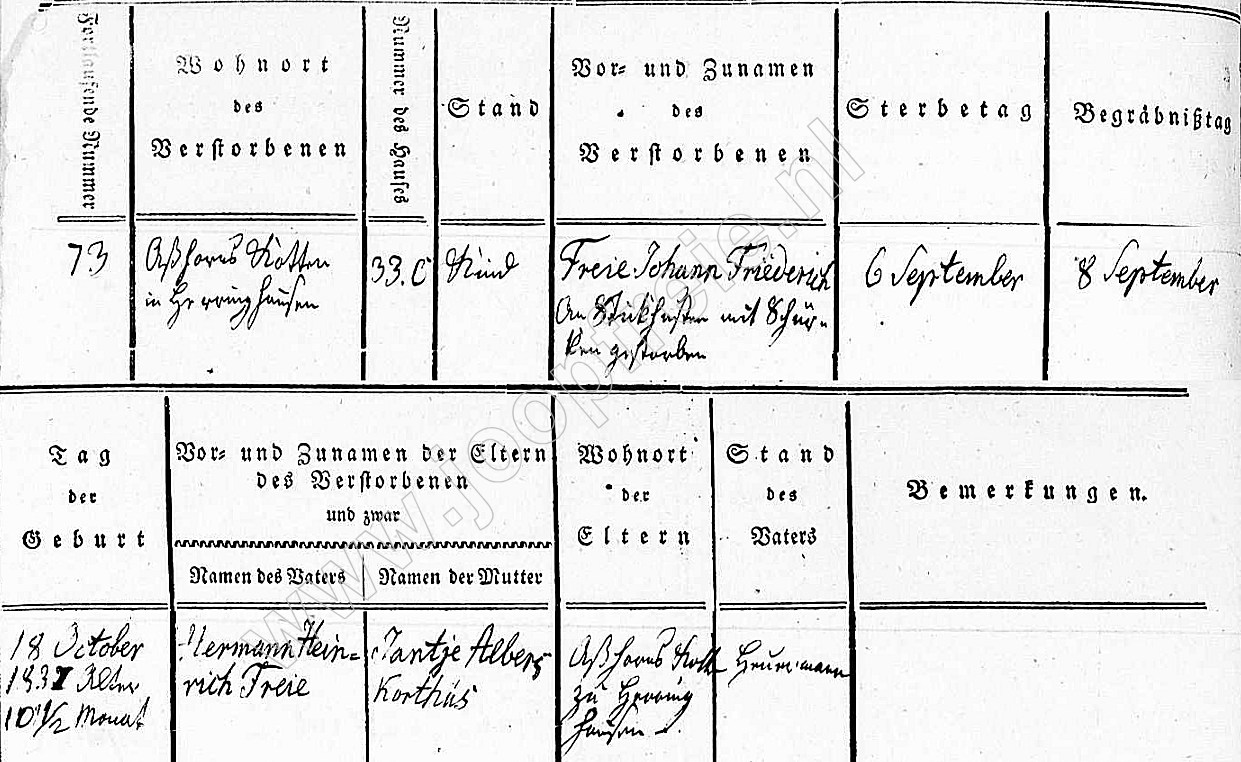 Fortlaufende Nummer
Wohnort
des
Verstorbenen
Nummer des Hauses
Stand
Vor- und Zunamen
des
Verstorbenen
Sterbetag
Begräbnißtag
73
Aßhorns Kotten
in Herringhausen
33.C
Kind
Freie Johann Friederich
An Stickhusten mit Schür-
ken gestorben
6 September
8 September
Tag
der
Geburt
Vor- und Zunamen der Eltern
des Verstorbenen
und zwar
Namen des Vaters
Namen der Mutter
Wohnort
der
Eltern
Stand
des
Vaters
Bemerkungen.
18 October
1837 Alter
10 1/2 Monat
Hermann Hein-
rich Freie
Jantje Albers
Korthus
Aßhorns Kott
zu Herring
hausen
Heuermann
www.jooptreie.nl